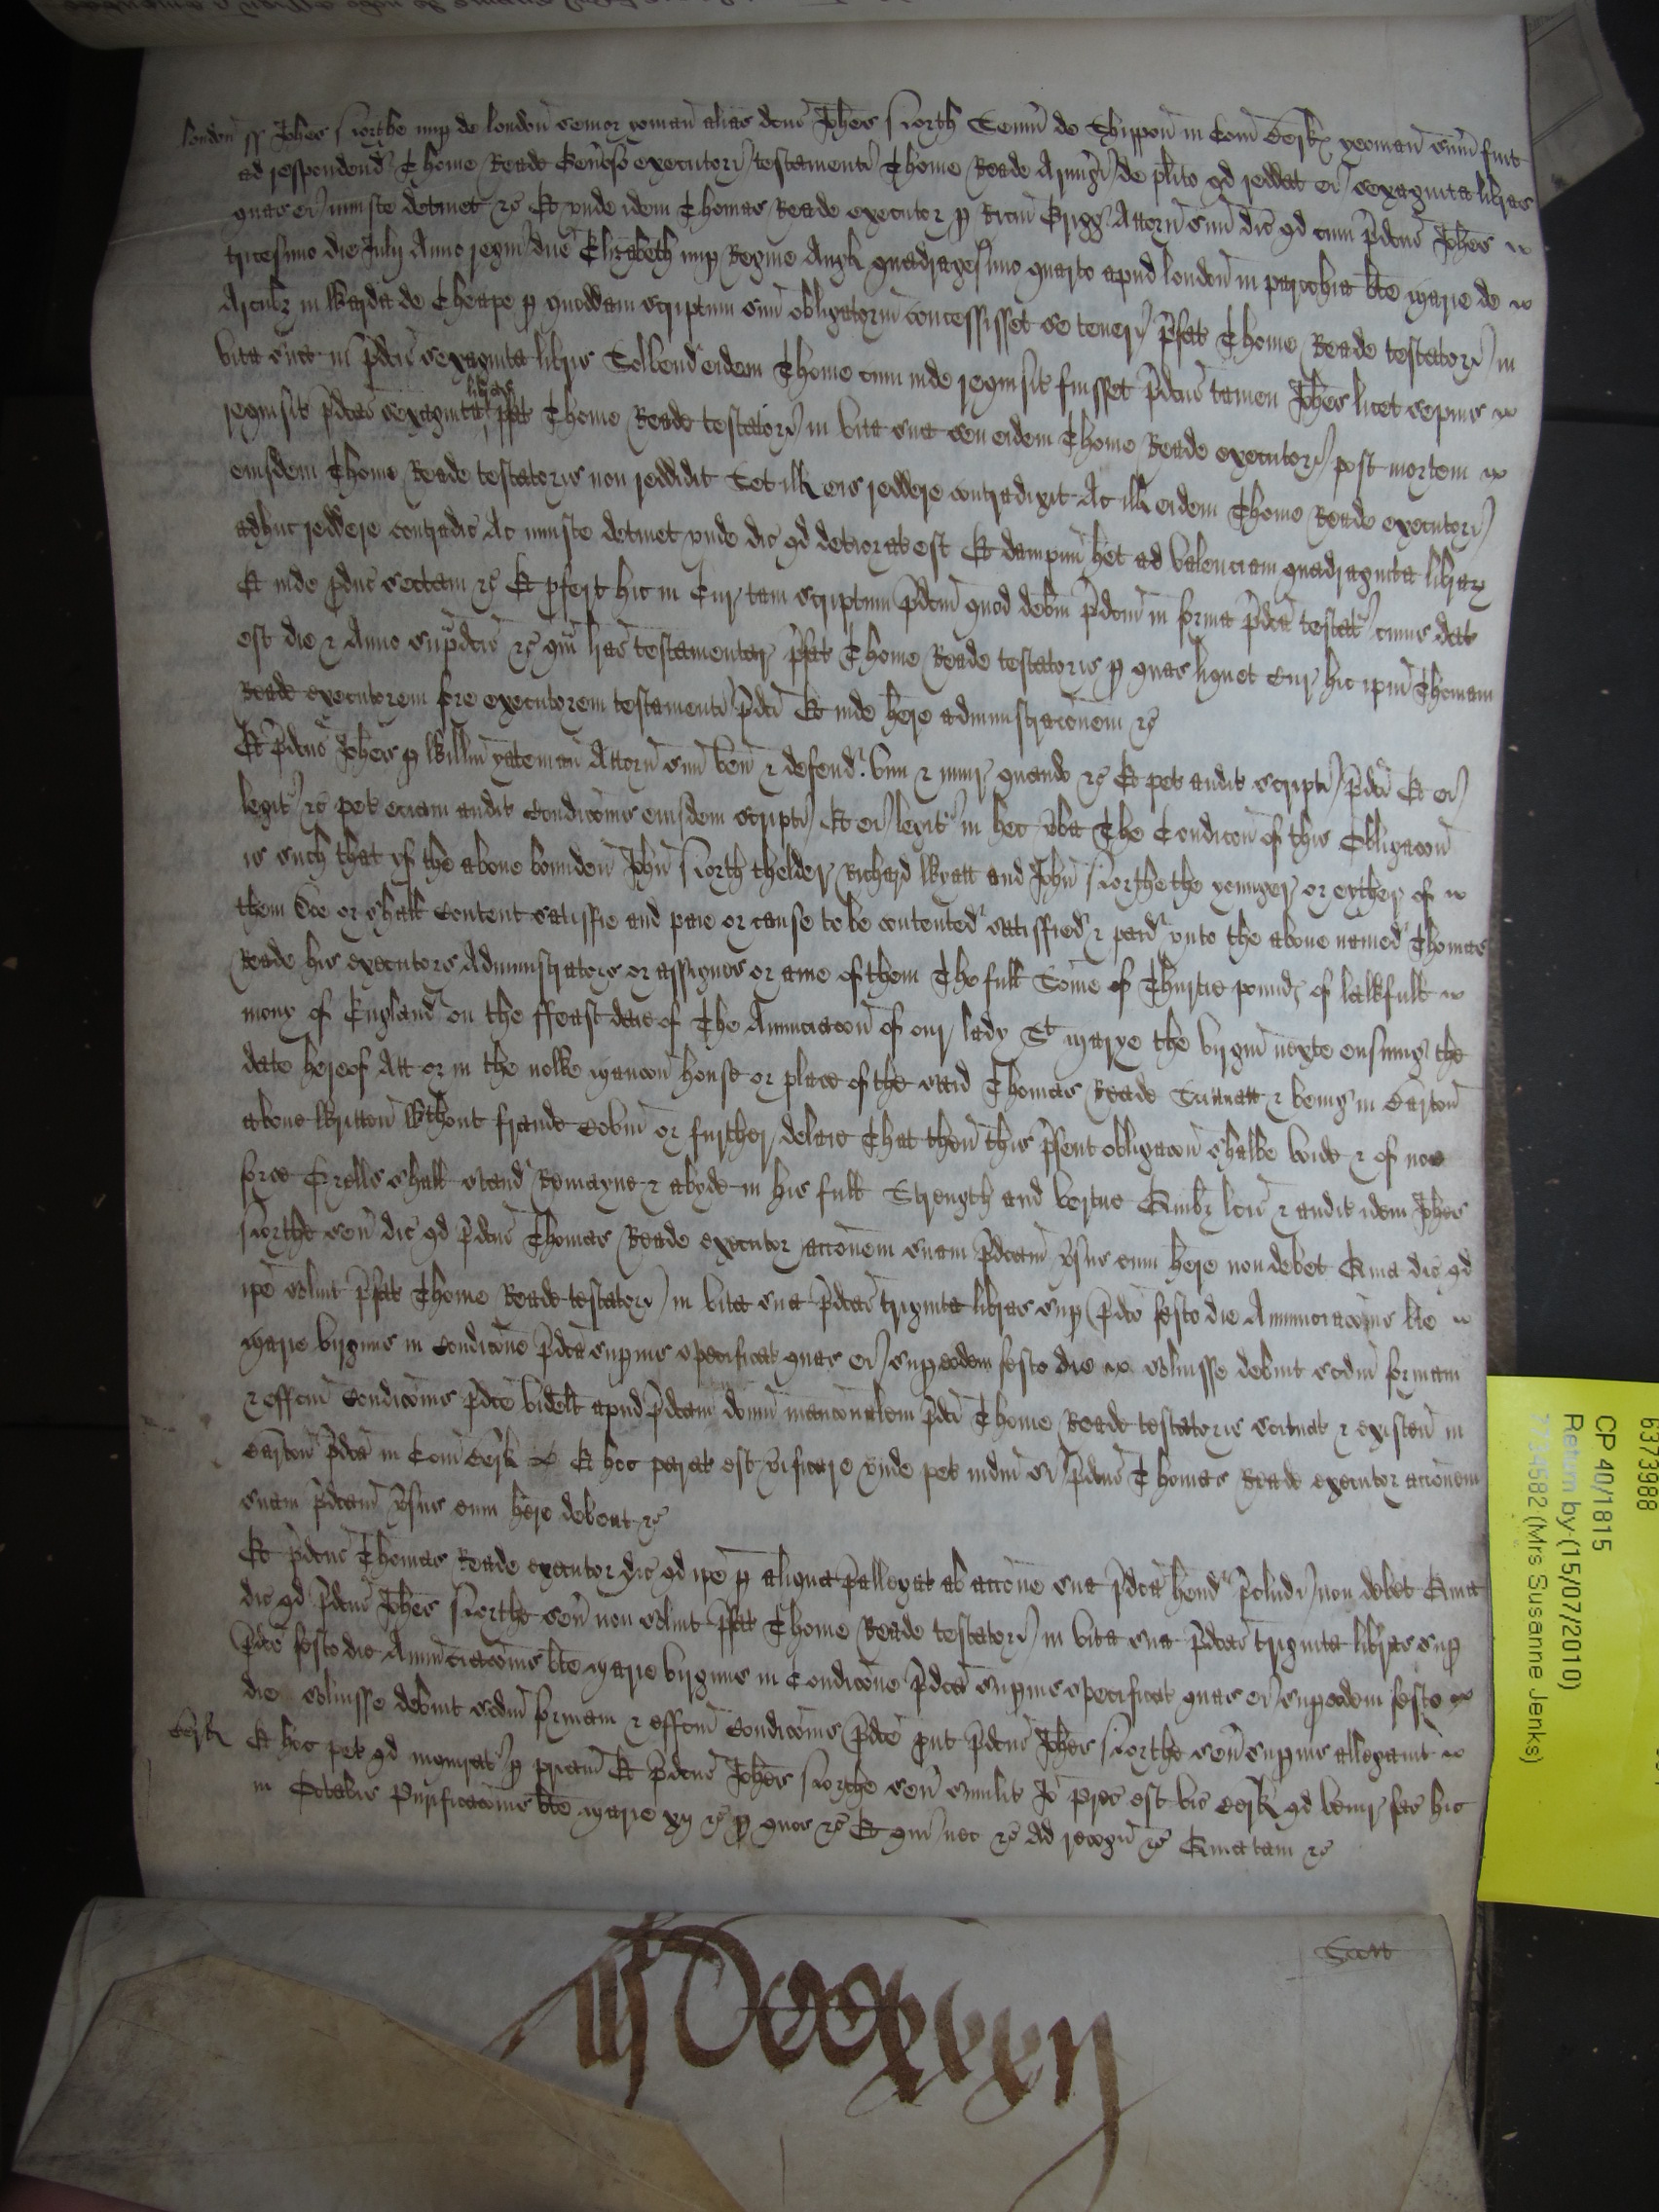 london ss Johes Northe nup de london senior yoman alias dcus Johes North Senior de Shippon in Com Berk yeoman sum fuit
ad respondend Thome Reade Geneoso executori testamenti Thome Reade Armigi de plito qd reddat ei sexaginta libras
quas ei iniuste detinet &c Et unde idem Thomas Reade executor p Ricm Grigg Attorn suu dic qd cum pdcus Johes
tricesimo die Julij Anno regni dne Elizabeth nup Regine Angl quadragesimo quarto apud london in parochia bte Marie de
Arcubz in Warda de Cheape p quoddam scriptum suu obligatoriu concessisset se teneri pfat Thome Reade testatori in
vita sua in pdcis sexaginta libris Solvend eidem Thome cum inde requisit fuisset pdcus tamen Johes licet sepius
requisit pdcas sexaginta libras pfat Thome Reade testatori in vita sua seu eidem Thome Reade executori post mortem
eiusdem Thome Reade testatoris non reddidit Set ill eis reddere contradixit Ac ill eidem Thome Reade executori
adhuc reddere contradic Ac iniuste detinet unde dic qd deteriorat est Et dampnu het ad valenciam quadraginta librar
Et inde pduc sectam &c Et pfert hic in Cur tam scriptum pdcm quod debm pdcm in forma pdca testat cuius dat
est die & Anno supdcis &c qm lras testamentar pfat Thome Reade testatoris p quas liquet Cur hic ipm Thomam
Reade executorem fore executorem testamenti pdci Et inde here administraconem &c
Et pdcus Johes p Willm yateman Attorn suu ven & defend vim & iniur quando &c Et pet audit scripti pdci Et ei
legit &c pet eciam audit Condiconis eiusdem scripti Et ei legit in hec vba The Condicon of this Obligacon
is such that yf the above bounden John North thelder Richard Wyatt and John Northe the yonnger or eyther of
them Doe or shall Content satisfie and paie or cause to be contented satisfied & paid unto the above named Thomas
Reade his executors Administrators or assignes or anie of them The full Some of Thirtie pounds of lawfull
mony of England on the ffeast daie of The Annuciacon of our lady St Marye the virgin nexte ensuing the
date hereof Att or in the nowe mancon house or place of the said Thomas Reade Scituatt & being in Barton
above written Wthout fraude Covin or further delaie That then this psent obligacon shalbe voide & of non
force Or ells shall stand Remayne & abyde in his full Strength and vertue Quibz lcis & audit idem Johes
Northe sen dic qd pdcus Thomas Reade executor accionem suam pdcam vsus eum here non debet Quia dic qd
ipe solvit pfat Thome Reade testatori in vita sua pdcas triginta libras sup pdco festo die Annunciaconis bte
Marie virginis in Condicone pdca supius specificat quas ei sup eodem festo die solvisse debuit scdm formam
& effcm Condiconis pdce videlt apud pdcam domu manconalem pdci Thome Reade testatoris scituat & existen in
Barton pdca in Com Berk Et hoc parat est vificare unde pet iudm si pdcus Thomas Reade executor accionem
suam pdcam vsus eum here debeat &c
Et pdcus Thomas Reade executor dic qd ipe p aliqua pallegat ab accone sua pdca hend pcludi non debet Quia
dic qd pdcus Johes Northe sen non solvit pfat Thome Reade testatori in vita sua pdcas triginta libras sup
pdco festo die Annunciaconis bte Marie virginis in Condicone pdca supius specificat quas ei sup eodem festo
die solvisse debuit scdm formam & effcm Condiconis pdce put pdcus Johes Northe sen supius allegavit
Berk Et hoc pet qd inquirat p priam Et pdcus Johes Northe sen similit Io prec est vic Berk qd venir fac hic
in Octabis Purificaconis bte Marie xij &c p quos &c Et qui nec &c Ad recogn &c Quia tam &c
Scott
6373988
CP 40/1815
Return by (15/07/2010)
7734582 (Mrs Susanne Jenks)